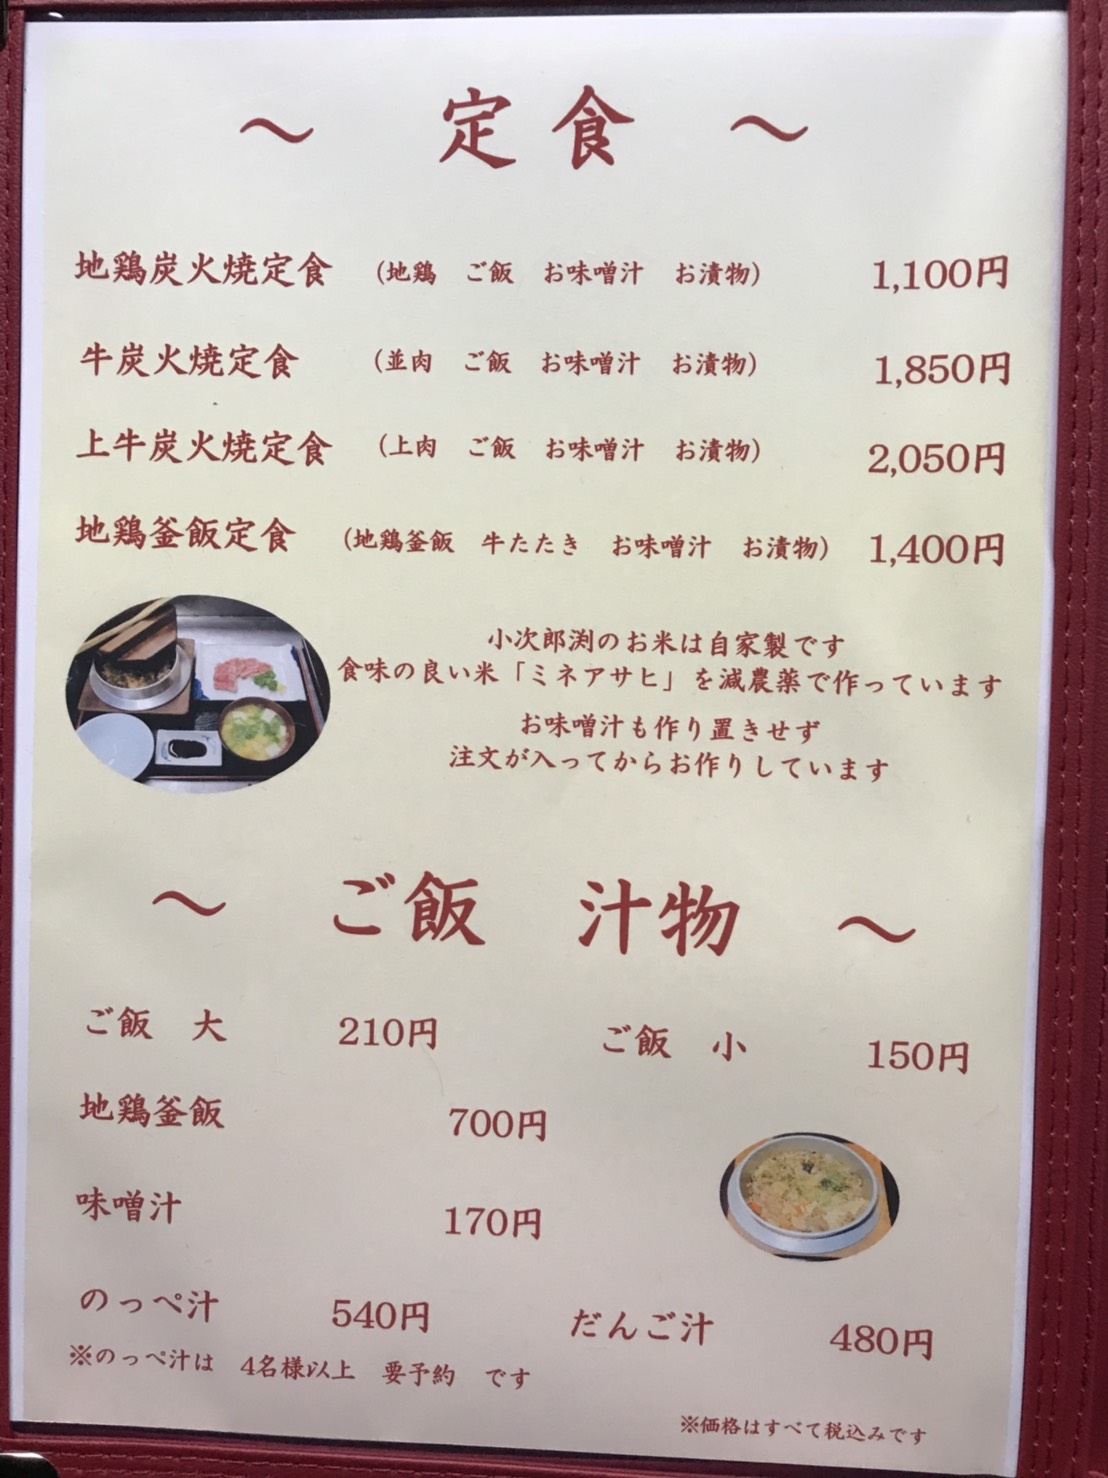 ～　定食　～
地鶏炭火焼定食　（地鶏　ご飯　お味噌汁　お漬物）　1,100円
牛炭火焼定食　（並肉　ご飯　お味噌汁　お漬物）　1,850円
上牛炭火焼定食　（上肉　ご飯　お味噌汁　お漬物）　2,050円
地鶏釜飯定食　（地鶏釜飯　牛たたき　お味噌汁　お漬物）　1,400円
小次郎渕のお米は自家製です
食味の良い米「ミネアサヒ」を減農薬で作っています
お味噌汁も作り置きせず
注文が入ってからお作りしています
～　ご飯　汁物　～
ご飯　大　210円　ご飯　小　150円
地鶏釜飯　700円
味噌汁　170円
のっぺ汁　540円　だんご汁　480円
※のっぺ汁は　4名様以上　要予約　です
※価格はすべて税込みです